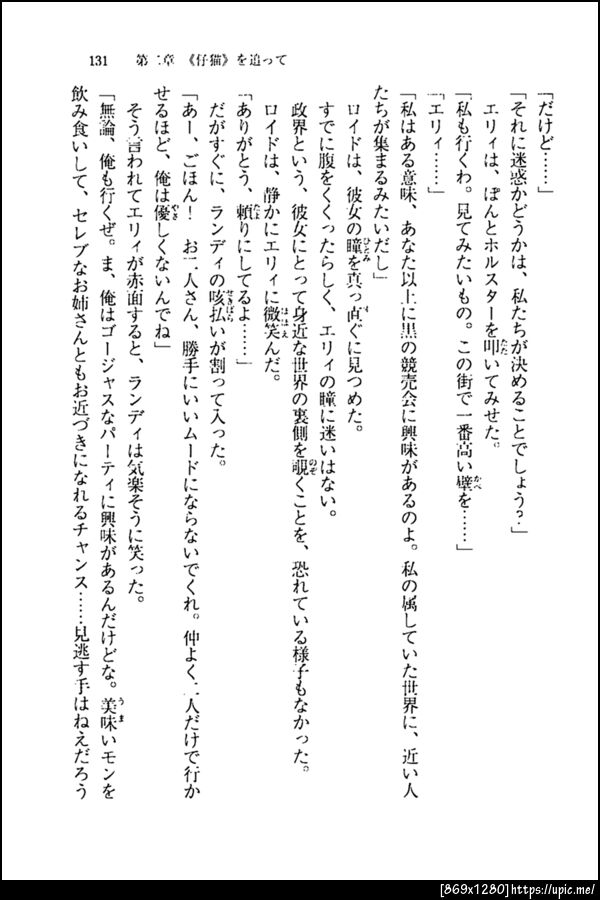 131　第二章　《仔猫》を追って
「だけど……」
「それに迷惑かどうかは、私たちが決めることでしょう?」
エリィは、ぽんとホルスターを叩いてみせた。
「私も行くわ。見てみたいもの。この街で一番高い壁を……」
「エリィ……」
「私はある意味、あなた以上に黒の競売会に興味があるのよ。私の属していた世界に、近い人
たちが集まるみたいだし」
ロイドは、彼女の瞳を真っ直ぐに見つめた。
すでに腹をくくったらしく、エリィの瞳に迷いはない。
政界という、彼女にとって身近な世界の裏側を覗くことを、恐れている様子もなかった。
ロイドは、静かにエリィに微笑んだ。
「ありがとう、頼りにしてるよ……」
だがすぐに、ランディの咳払いが割って入った。
「あー、ごほん!　お二人さん、勝手にいいムードにならないでくれ。仲よく二人だけで行か
せるほど、俺は優しくないんでね」
そう言われてエリィが赤面すると、ランディは気楽そうに笑った。
「無論、俺も行くぜ。ま、俺はゴージャスなパーティに興味があるんだけどな。美味いモンを
飲み食いして、セレブなお姉さんともお近づきになれるチャンス……見逃す手はねえだろう
[869x1280]https://upic.me/